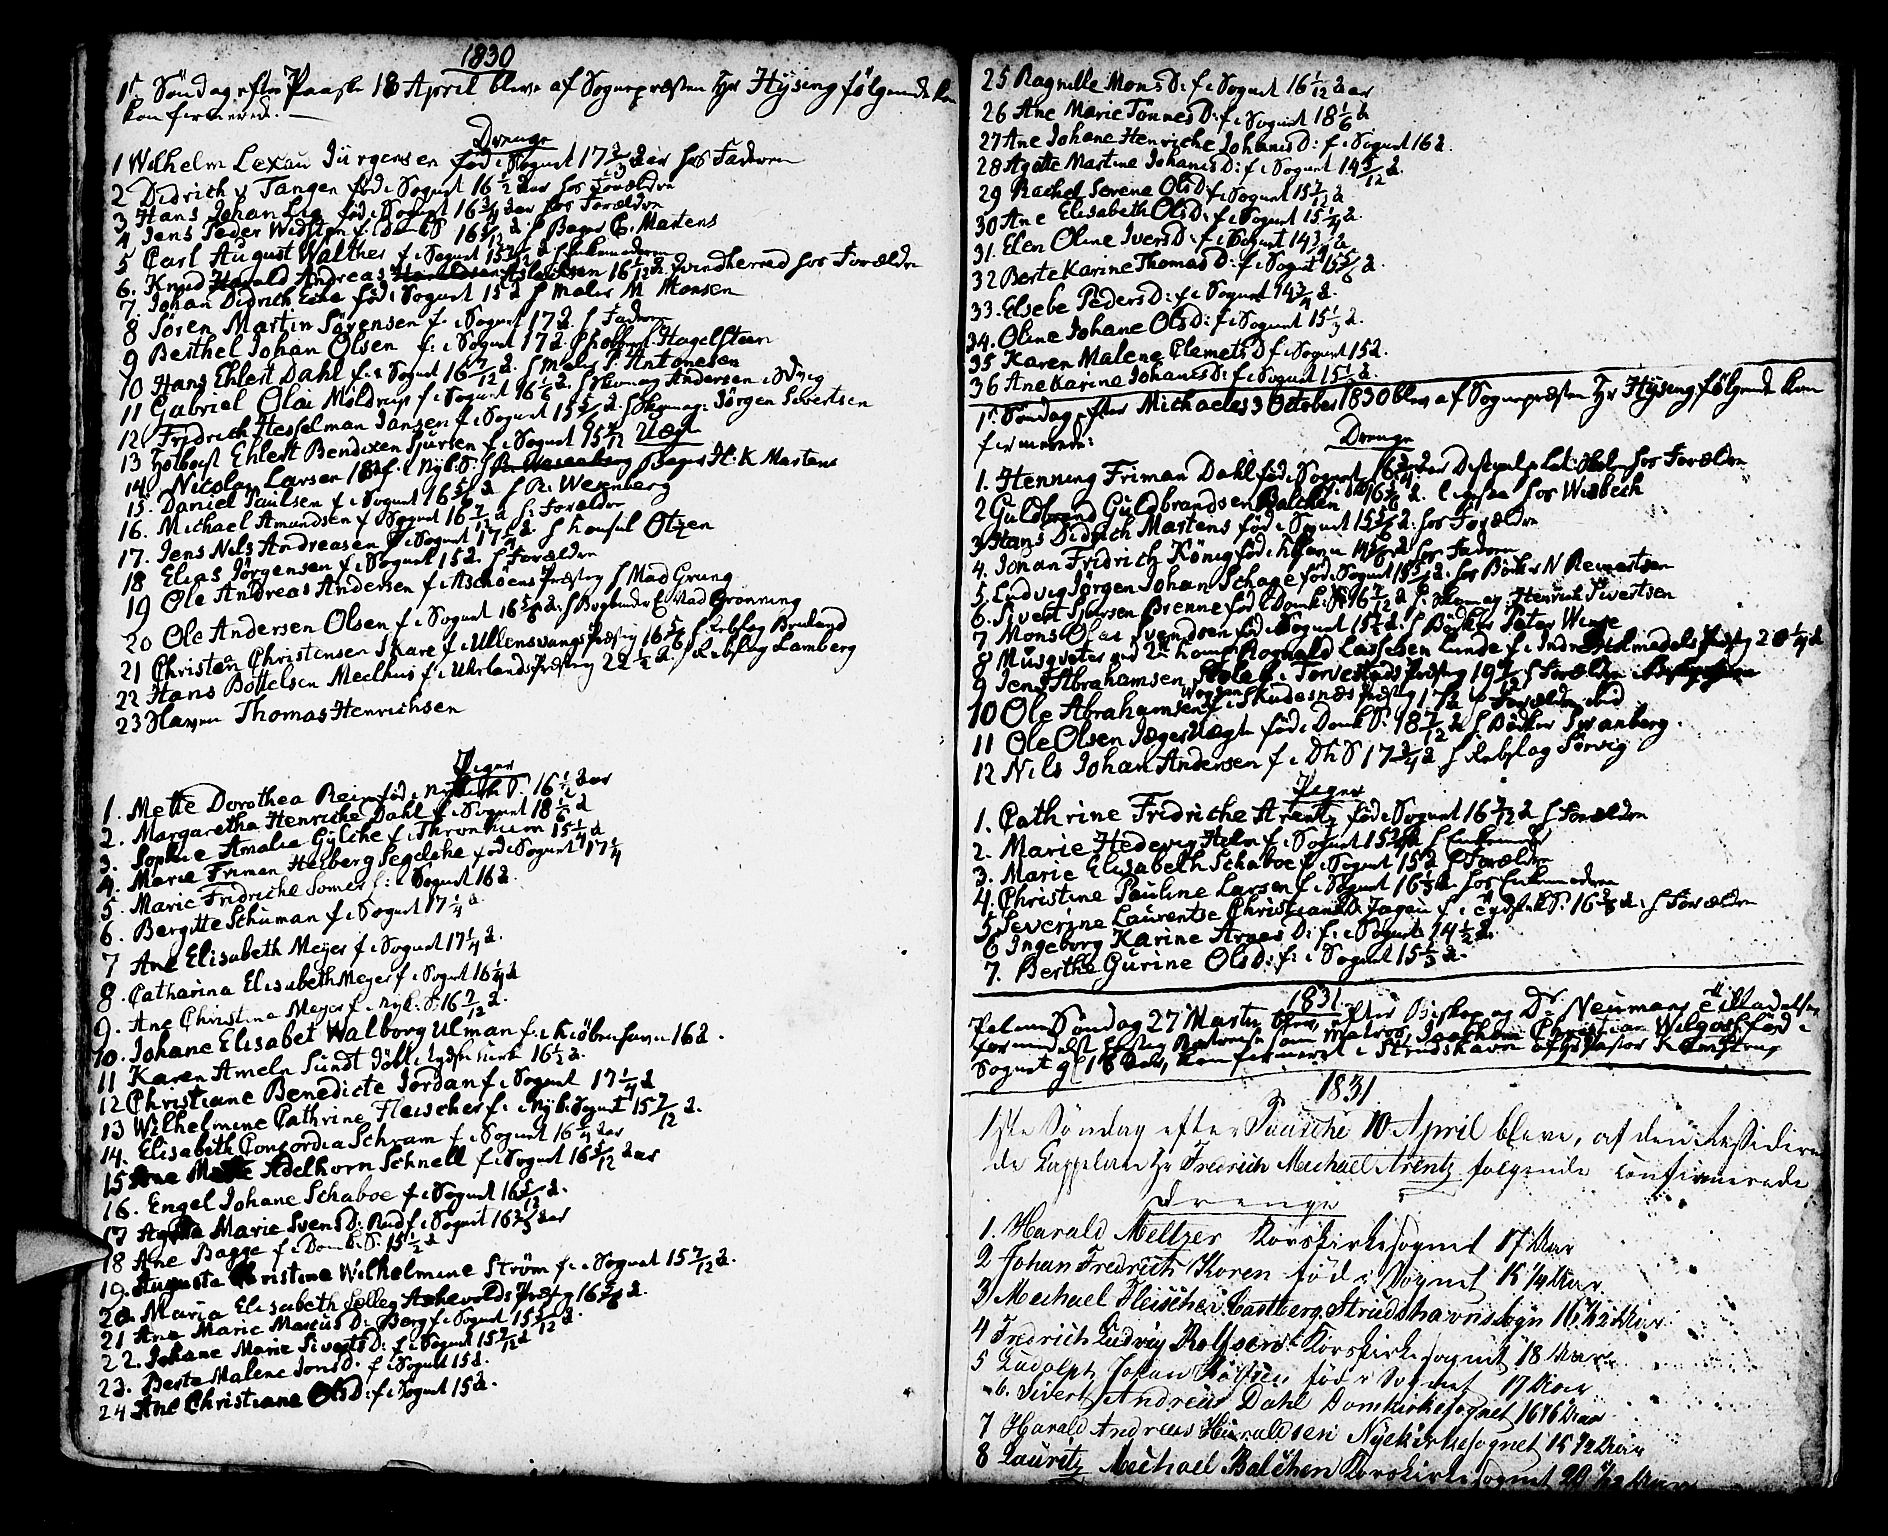 1830
1ste Söndag efter Paaske 18 April bleve af Sognepræsten Hr Hysing følgende kon
firmerede. —
Drenge
1 Wilhelm Lexau Jürgensen født i Sognet 17 2/3 aar hos Faderen
2 Didrich v Tangen fød i Sognet 16 1/2 aar hos Forældre
3 Hans Johan Lie fød i Sognet 16 3/4 aar hos Forældre
4 Jens Peder Widsten f. i Domk S 16 5/12 a. Bager C. Martens
5 Carl August Walther f i Sognet 15
6. Knud Harald Andreas Aslachsen 16 Qvindherred hos Forældre
7. Johan Didrich Eide fød i Sognet 15 a Maler M Monsen
8 Sören Martin Sörensen f. i Sognet 17 a. Faderen
9 Berthel Johan Olsen f: i Sognet 17 a. Hagelsteen
10 Hans Ehlert Dahl f. i Sognet 16 7/12 a. Maler P. Antonesen
11 Gabriel Olai Möldrup f i Sognet 16 1/6 a. Skomag Andersen
12. Fridrich Hesselman Jansen f i Sognet 15 Skomag: Jörgen Severtsen
13 Holbert Ehlert Bendixen Sjursen f i Sognet 15 7/12 Uægt
14 Nicolay Larsen f. i Nyk. S. Bager H. K Martens
15. Daniel Paulsen f i Sognet 16 5/6 a R. Wesenberg
16. Michael Amundsen f i Sognet 16 7/12 a Forældre
17. Jens Nils Andreasen f i Sognet 17 1/4 a Consul Otzen
18 Elias Jörgensen f i Sognet 15 a. Forældre
19 Ole Andreas Andersen f i Aschoens Præsteg Mad Grung
20 Ole Andersen Olsen f i Sognet 16 5/6 a. Bogbinder Grönning
21 Christen Christensen Skare f i Ullensvangs Præsteg 16 5/6 Rebslag Bruland
22 Hans Bottelsen Meelhus f i Uhrlands Præsteg 22 1/4 a. Rebslag Lamberg
23 Slaven Thomas Henrichsen
Piger
1. Mette Dorothea Rein fød i Nykirk S. 16 1/2 aar
2. Margaretha Henriche Dahl f i Sognet 18 1/6 a
3. Sophie Amalia Gylche f i Thronhiem 15 1/4 a
4. Marie Friman Heiberg Segelche fød i Sognet 17 1/4
5. Marie Fridriche Somer f: i Sognet 16 a.
6. Bergitte Schuman f i Sognet 17 1/4 a
7 Ane Elisabeth Meyer f i Sognet 17 1/4 a.
8. Catharina Elisabeth Meyer f i Sognet 16 1/4 a
9. Ane Christine Meyer f. i Nyk: S. 16 7/12 a.
10. Johane Elisabet Walborg Ulman f. i Kiöbenhavn 16 a.
11 Karen Ameln Sundt f i 16 1/2 a.
12 Christiane Benedicte Jordan f i Sognet 17 1/4 a
13 Wilhelmine Cathrine Fleischer f. i Nyk: Sognet 15 7/12 a.
14. Elisabeth Concordia Schram f i Sognet 16 1/4 aar
15 Ane Mette Adelhorn Schnell f i Sognet 16 5/12 aar
16. Engel Johane Schaboe f i Sognet 16 a.
17 Agatha Marie Svens D: Rud f i Sognet 16 2/3 aar
18 Ane Bagge f i Domk. S. 15 1/2 a
19. Augusta Christine Wilhelmine Ström f. i Sognet 15 7/12 a.
20. Maria Elisabeth Selleg Aschevolds Præsteg 16 5/6 a.
21 Ane Marie Marcus D: Berg f i Sognet 15 5/12 a.
22. Johane Marie Siverts D: f i Sognet 15 7/12 a
23. Berte Malene Jons D. f i Sognet 15 a.
24 Ane Christiane Ols D: f i Sognet 15 a.
25 Ragnille Mons D: f i Sognet 16 1/12 aar
26 Ane Marie Tönnes D: f i Sognet 18 1/6 a
27 Ane Johane Henriche Johanis D: f i Sognet 16 a.
28 Agate Martine Johanis D: f i Sognet 14 5/12 a.
29 Rachel Serene Ols D: f i Sognet 15 7/12 a
30 Ane Elisabeth Ols D: f i Sognet 15 1/4 a.
31. Elen Oline Ivers D: f i Sognet 14 3/4 a
32 Berte Karine Thomas D: f i Sognet 15 5/6 a.
33. Elsebe Peders D: f i Sognet 14 3/4 a.
34. Oline Johane Ols D: f i Sognet 15 1/3 a.
35 Karen Malene Clemets D f i Sognet 15 a.
36 Ane Karina Johanes D: f i Sognet 15 1/2 a.
1ste Söndag efter Michaeles 3 October 1830 blev af Sognepræsten Hr Hysing følgende kon
firmerede:
Drenge
1. Henning Friman Dahl fød i Sognet 16 3/4 aar hos Forældre
2 Guldbrand Guldbrandsen Balchen 16 hos Wisbech
3 Hans Didrich Martens fød i Sognet 15 5/6 a. hos Forældre
4. Johan Fridrich König fød i hos Faderen
5. Ludvig Jörgen Johan Schage fød i Sognet 15 hos Böcker N Reinertsen
6. Sivert Sjursen Brenne fød i Domk. S. 16 7/12 a Skomag: Henrich Sivertsen
7 Mons Olai Svendsen fød i Sognet 15 1/2 a. Böcker Peter Winge
8 Musqveter ved 2de Comp Rognald Lassesen Lunde f i Præsteg 20 1/4 a
9 Jens Abrahamsen f i Torvestads Præsteg 19 Forældre
10 Ole Abrahamsen f i Skudesnæs Præsteg 17 a Forældre ibid
11 Ole Olsen Jæger Uægte fød i Domk S. 18 7/12 a Böcker Swanberg.
12 Nils Johan Andersen f i Dk S 17 3/4 a Rebslag Sörvig
Piger
1. Cathrine Fridriche Arentz fød i Sognet 16 7/12 a Forældre
2. Marie Hedevig Helm f i Sognet 15
3. Marie Elisabeth Schaboe f i Sognet 15 a Forældre
4. Christine Pauline Larsen f i Sognet 16 1/3 a. hos Enkemoderen
5 Severine Laurentse Christians D: Jagau f i 16 a. Forældre
6 Ingeborg Karine Arnes D: f. i Sognet 14 1/2 a.
7. Berthe Gurine Ols D: f: i Sognet 15 1/3 a.
1831.
Palme Söndag 27 Marts blev efter Biskop og Dr Neumans Tilladelse
formedelst hastig Bortreise som Matros, Joachim Christian Wilgos, fød i
Sognet gl 18 Aar, konfirmeret i Strudshavn af Hr Pastor Kamstrup
1831
1ste Söndag efter Paasche 10 April bleve, af den Ressideren
de Cappelan Hr Fredrich Michael Arentz folgende confirmerede
Drenge
1. Harald Meltzer Korskirkesognet 17 Aar
2 Johan Fredrich Koren fød i Sognet 15 1/4 Aar
3 Michael Fleischer Castberg, Strudshavns Sogn 16 7/12 Aar
4 Fredrich Ludvig Rolfsen Korskirkesognet 18 Aar
5 Ludolph Johan fød i Sognet 17 Aar
6. Sivert Andreas Dahl Domkirkesognet 16 1/6 Aar
7 Harald Andreas Haraldsen Nyekirkesognet 15 1/2 Aar
8 Lauritz Michael Balchen Korskirkesognet 20